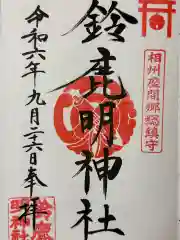 相州座間郷総鎮守
鈴鹿明神社
令和六年九月二十六日奉拝